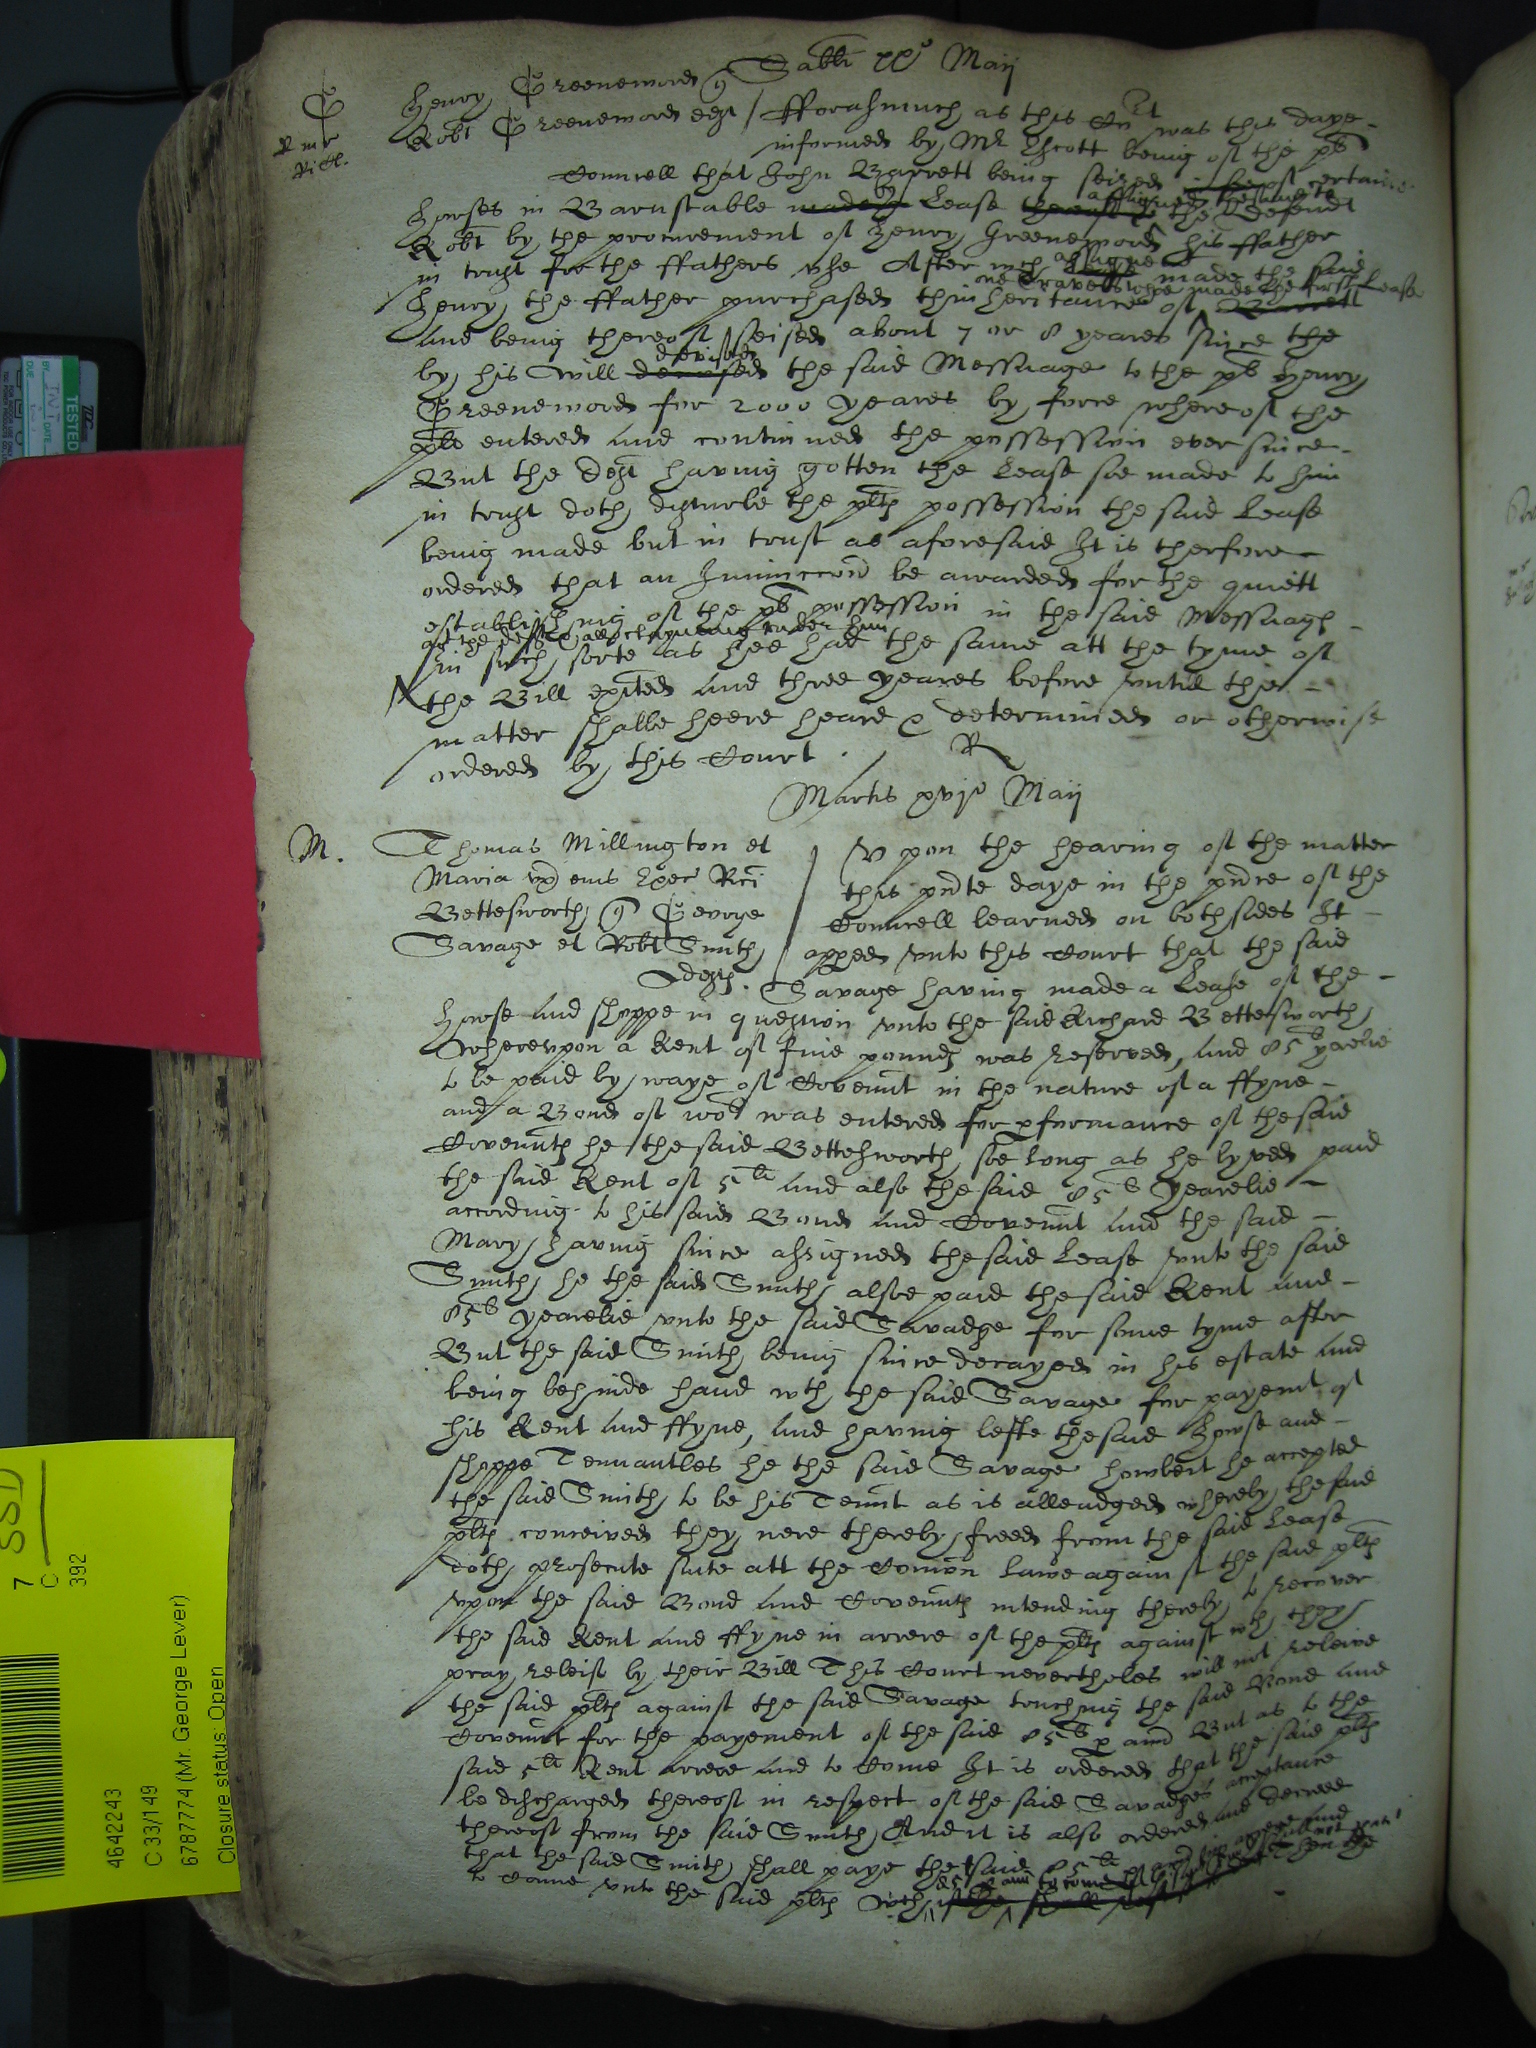 Sabbi xxo Maij
G
Rmr
Ricd.
Henry Greenewood q
Robt Greenewood deft / Fforasmuch as this Court was this daye
informed by Mr Scott being of the pls
Councell that John Barrett being seized of certaine
assigned the same to
howses in Barnstable made by Lease thereof to the Defendt
Robt by the procurement of Henry Greenewood his ffather
in trust for the ffathers vse After wch assignemt made the said
one who made the first Lease
Henry the ffather purchased thinheritance of Barrett
and being thereof seised about 7 or 8 yeares since the
devised
by his will demised the said Messuage to the pls Henry
Greenewood for 2000 yeares by force whereof the
pls entered and continued the possession ever since
But the deft having gotten the Lease soe made to him
in trust doth disturbe the pltes possession the said Lease
being made but in trust as aforesaid It is therfore
ordered that an Iniunccon be awarded for the quiett
establishing of the pls possession in the said Messuage
agt the deft & all clayming vnder him
in such sorte as hee had the same att the tyme of
the Bill exited and three yeares before vntill the
matter shalbe heere heard & determined or otherwise
ordered by this Court. R
Martis xvjo Maij
M.
Thomas Millington et
Maria vx eius Exec Rici
Bettesworth q George
Savage et Robt Smith
defts.
Vpon the hearing of the matter
this pnte daye in the pnce of the
Councell learned on both sides It
appeed vnto this Court that the said
Savage having made a Lease of the
howse and shoppe in question vnto the said Richard Bettesworth
wherevpon a Rent of fiue pounds was reserved, and 85li yearelie
to be paid by waye of Covennt in the nature of a ffyne
and a Bond of was entered for pformance of the said
Covennts he the said Bettesworth soe long as he lyved paid
the said Rent of 5li and also the said 85li yearelie
according to his said Bond and Covennt and the said
Mary having since assigned the said Lease vnto the said
Smith he the said Smith alsoe paid the said Rent and
85li yearelie vnto the said Savadge for some tyme after
But the said Smith being since decayed in his estate and
being behinde hand wth the said Savage for payemt of
his Rent and ffyne, and having lefte the said howse and
shoppe Tennantles he the said Savage howbeit he accepted
the said Smith to be his Tennt as is alleadged whereby the said
pltes conceived they were thereby freed from the said Lease
doth prosecute suite att the Comon Lawe against the said pltes
vpon the said Bond and Covennts intending thereby to recover
the said Rent and ffyne in arrere of the pltes against wch they
pray releif by their Bill This Court nevertheles will not releive
the said pltes against the said Savage touching the said Bond and
Covennt for the payement of the said 85li p ann But as to the
said 5li Rent arrere and to Come It is ordered that the said pltes
be discharged thereof in respect of the said Savadges acceptance
thereof from the said Smith And it is also ordered and decreed
that the said Smith shall paye the said 85li arrere and
to Come vnto the said pltes wch if he shall not
TESTED
DUE
7
C
392
SSD
4642243
C 33/149
6787774 (Mr. George Lever)
Closure status: Open